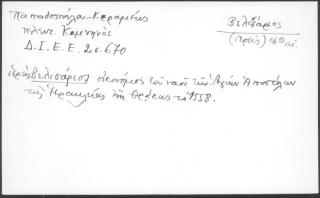 Παπαδοπούλου-Κεραμέως
τελευτ. Κομνηνός
Δ.Ι.Ε.Ε. 2 σ. 670
Βελισάριος
(ἱερεὺς) 16ου αἰ.
ἱερεὺς Βελισάριος οἰκονόμος τοῦ ναοῦ τῶν Ἁγίων Ἀποστόλων
τῆς Ἡρακλείας τῆς Θράκης τὸ 1558.